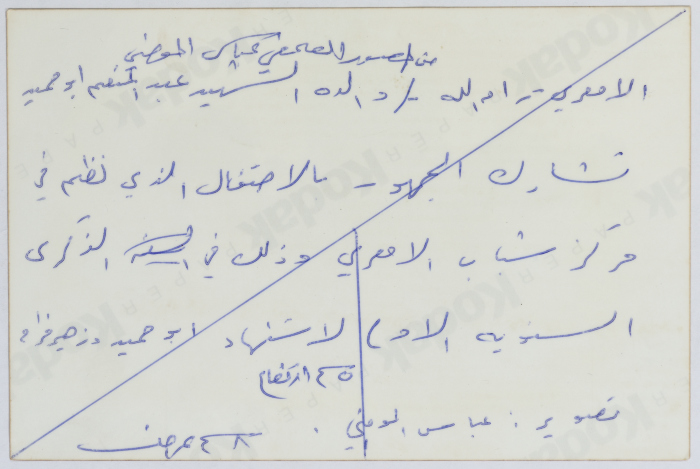 من المصور الصحفي عباس المومني
الامعري - رام الله - والدة الشهيد عبد المنعم ابو حميد
تشارك الجمهور بالاحتفال الذي نظم في
مركز شباب الامعري وذلك في الذكرى
السنويه الاولى لاستشهاد ابو حميد و زهير فراح
٤٥ ارتفاع
تصوير : عباس المومني .
٤٨ عرض
Kodak
PAPER